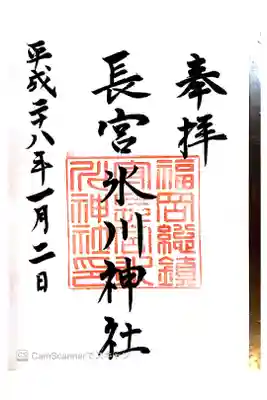 奉拝
長宮氷川神社
平成二十八年一月二日
福岡総鎮
CamScannerでスキャン